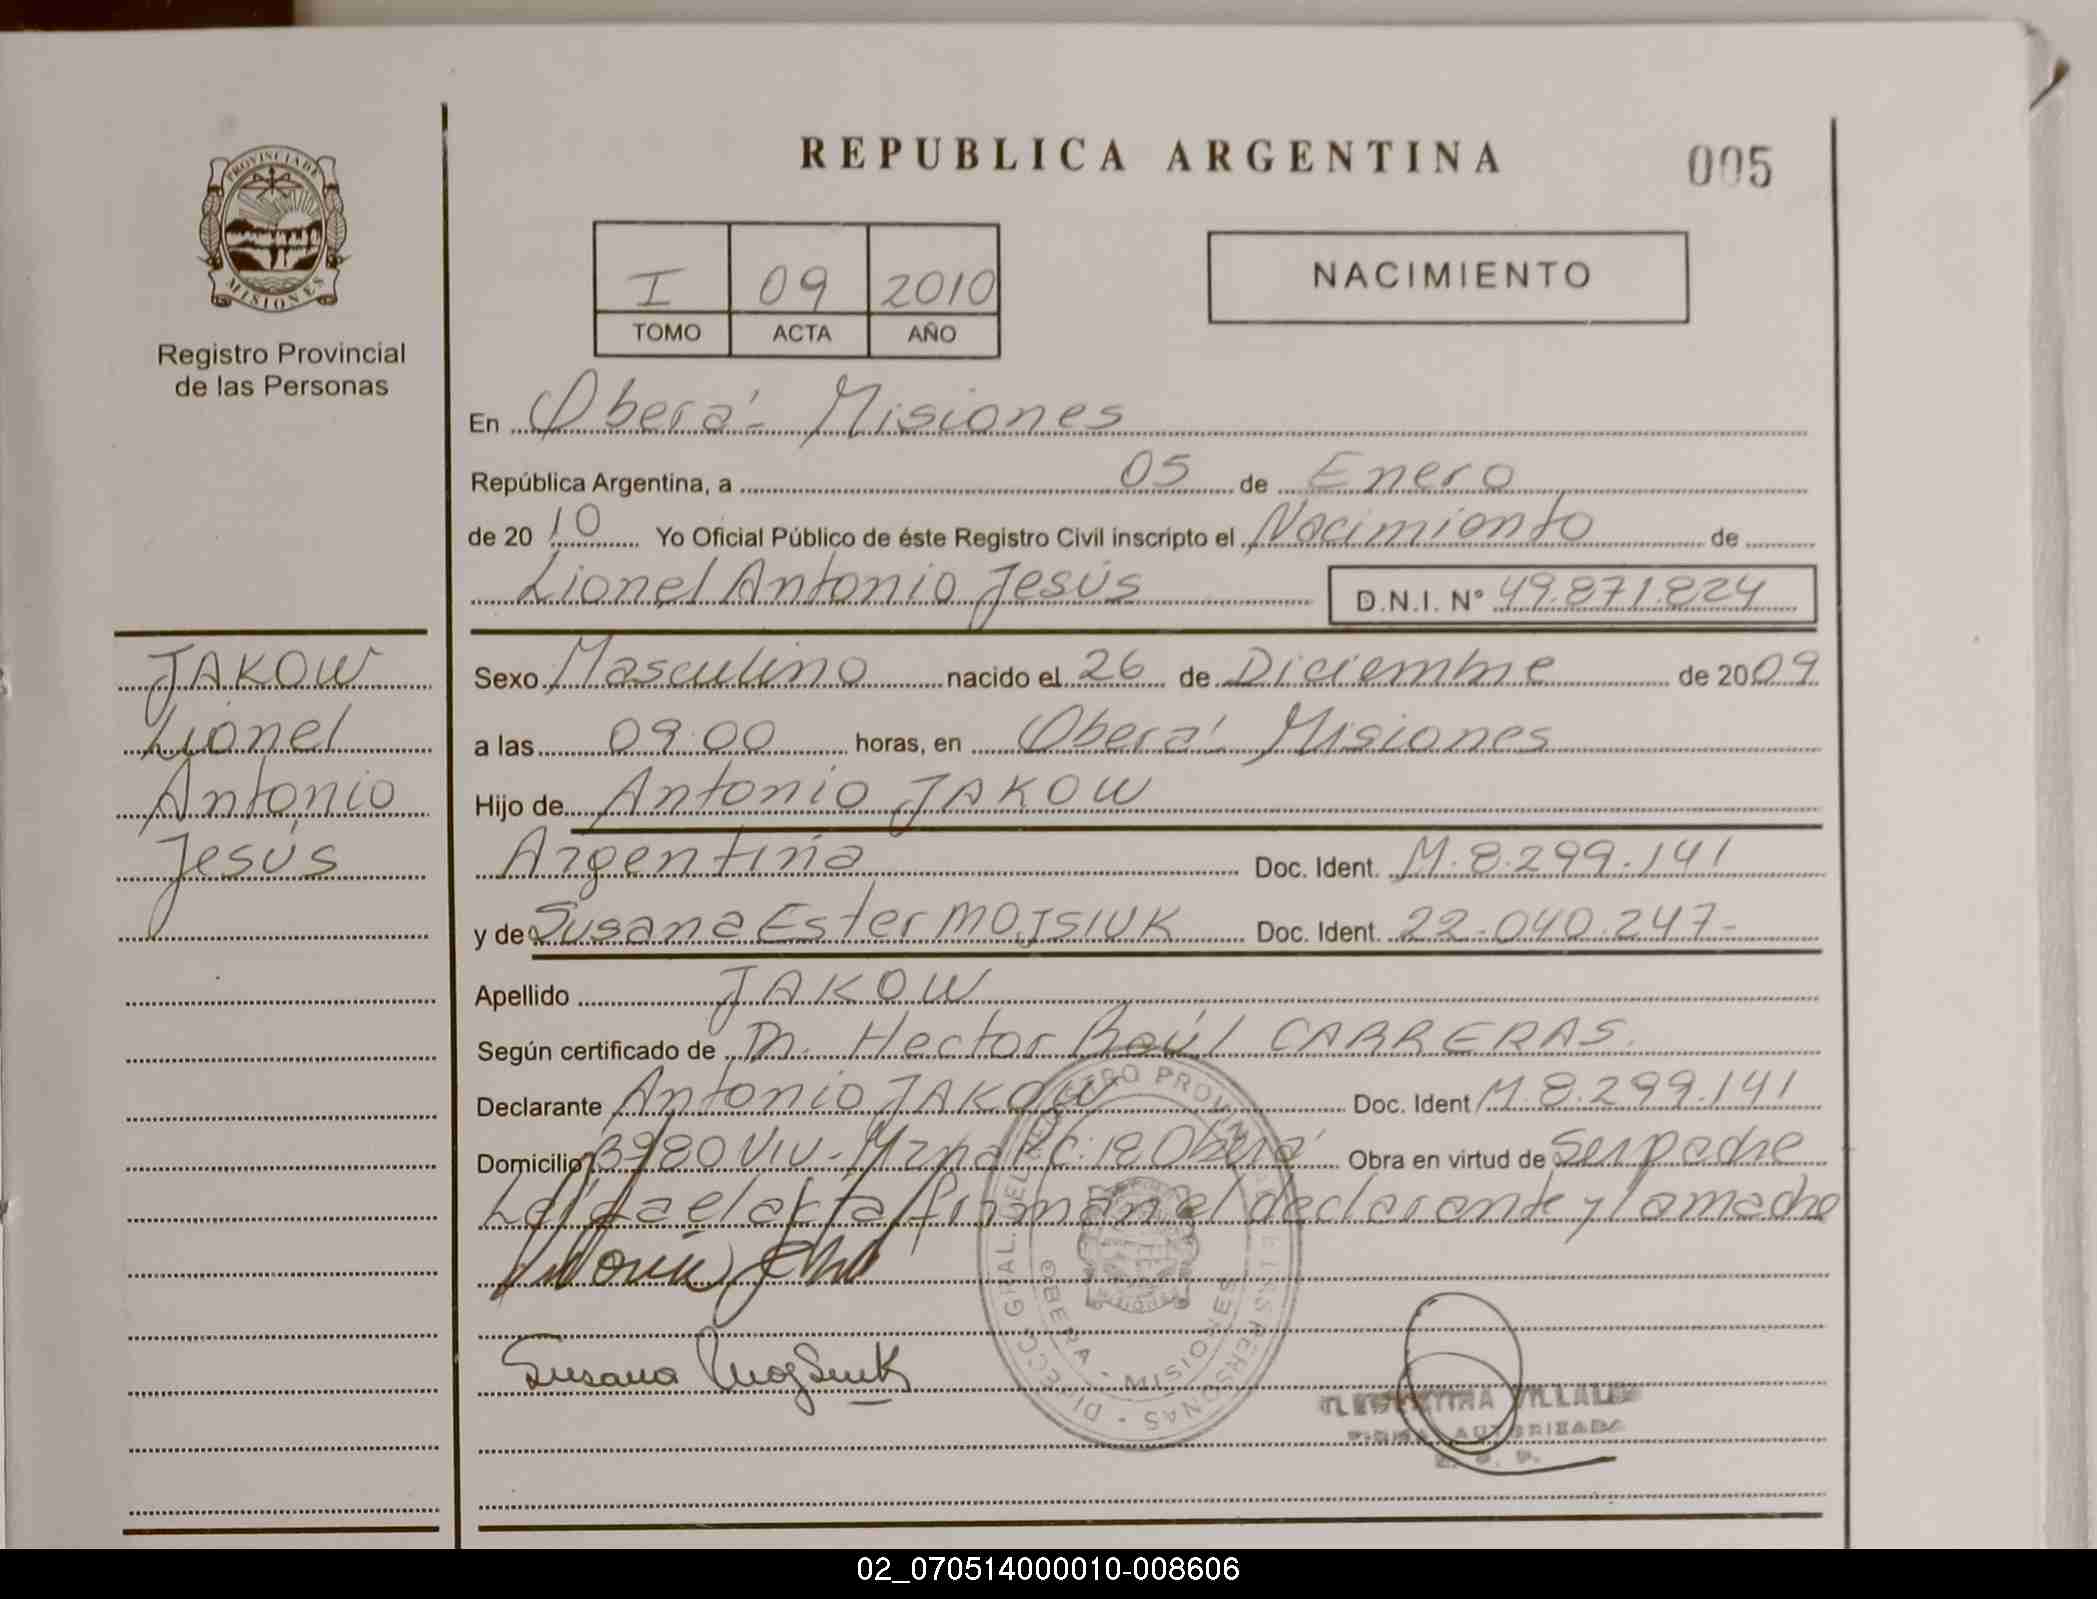 REPUBLICA ARGENTINA
005
PROVINCIA DE
MISIONES
Registro Provincial
de las Personas
I 09 2010
TOMO ACTA AÑO
NACIMIENTO
En Oberá - Misiones
República Argentina, a 05 de Enero
de 2010 Yo Oficial Público de éste Registro Civil inscripto el Nacimiento de
Lionel Antonio Jesús D.N.I. N° 49.871.824
JAKOW
Lionel
Antonio
Jesús
Sexo Masculino nacido el 26 de Diciembre de 2009
a las 09:00 horas, en Oberá Misiones
Hijo de Antonio JAKOW
Argentina Doc. Ident. M.8.299.141
y de Susana Ester MOJSIUK Doc. Ident. 22.040.247-
Apellido JAKOW
Según certificado de Dr. Hector Raúl CARRERAS.
Declarante Antonio JAKOW Doc. Ident M.8.299.141
Domicilio Bº 80 VIV - Mzna C: 18 Oberá Obra en virtud de Ser padre
Leída el acta firman el declarante y la madre
DIRECC. GRAL. DEL REGISTRO PROVINCIAL DE LAS PERSONAS
OBERA - MISIONES
Susana MojSiuk
FIRMA AUTORIZADA
02_070514000010-008606